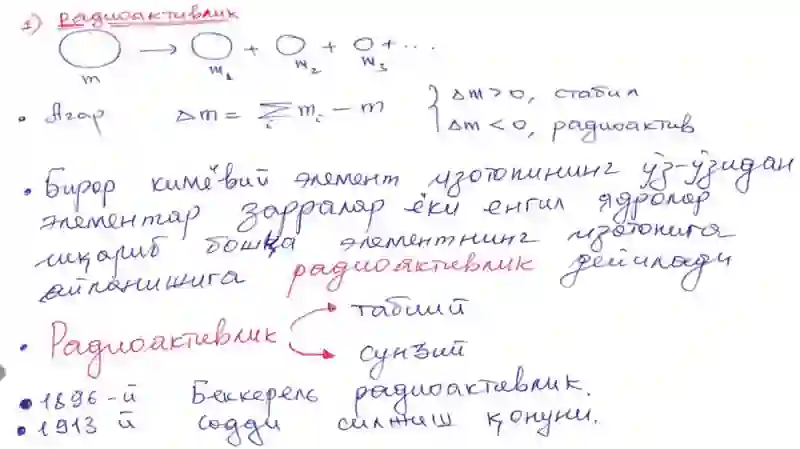 1) Радиоактивлик
m → m₁ + m₂ + m₃ + ...
• Агар Δm = Σᵢ mᵢ − m { Δm > 0, стабил
Δm < 0, радиоактив
• Бирор кимёвий элемент изотопининг ўз-ўзидан
элементар зарралар ёки енгил ядролар
чиқариб бошқа элементнинг изотопига
айланишига радиоактивлик дейилади
• Радиоактивлик → табиий
→ сунъий
• 1896-й Беккерель радиоактивлик.
• 1913 й Содди силжиш қонуни.